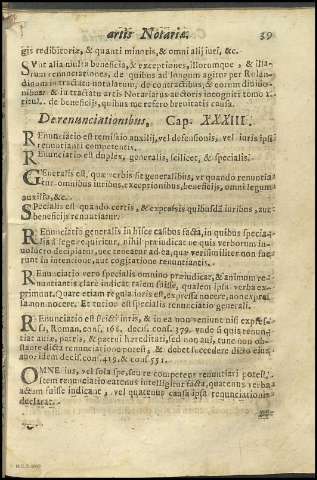 artis Notariæ. 39
gis redibitoriæ, & quanti minoris, & omni alij iuri, &c.
SVnt alia multa beneficia, & exceptiones, illorumque, & illa-
rum renunciationes, de quibus ad longum agitor per Rolan-
dinum in tractatu notularum, de contractibus, & eorum distinctio-
nibus & in tractatu artis Notariatus auctoris incogniti tomo 1.
titul.. de beneficijs, quibus me refero breuitatis causa.
De renunciationibus, Cap. XXXIII.
REnunciatio est remissio auxilij, vel defensionis, vel iuris ipsi
renuntianti competentis.
REnuntiatio est duplex, generalis, scilicet, & specialis.
GEneralis est, quæ verbis fit generalibus, vt quando renuntia
tur omnibus iuribus, exceptionibus, beneficijs, omni legum
auxilio, &c.
SPecialis est quando certis, & expressis quibusdā iuribus, aut
beneficijs renuntiatur.
REnuntiatio generalis in hisce casibus facta, in quibus specia-
lis à lege requiritur, nihil præiudicat ne quis verborum in-
uolucro decipiatur, vec teneatur ad ea, quæ verisimiliter non fue
runt in intentione, aut cogitatione renuntiantis.
REnuntiatio vero specialis omnino præiudicat, & animum re-
nuntiantis clarè indicat talem fuisse, qualem ipsa verba ex-
primunt. Quare etiam regula iuris est, expressa nocere, non expressa
non nocere, et fortior est specialis renuntiatio generali.
REnuntiatio est stricti iuris, & in ea non veniunt nisi expres-
sa, Roman. cons. 166. decis. cons. 379. vnde si quis renunt
tiat auiæ, patris, & paterni hæreditati, sed non aui, tunc non ob-
stante dicta renuntiatione potest, & debet succedere dicto eius
auo, idem decis. cons. 419. & cons 551.
OMNE ius, vel sola spe, seu re competens renuntiari potest,
item renunciatio eatenus intelligitur facta, quatenus verba
actum fuisse indicant, vel quatenus causa ipsa renunciationis
declarat.